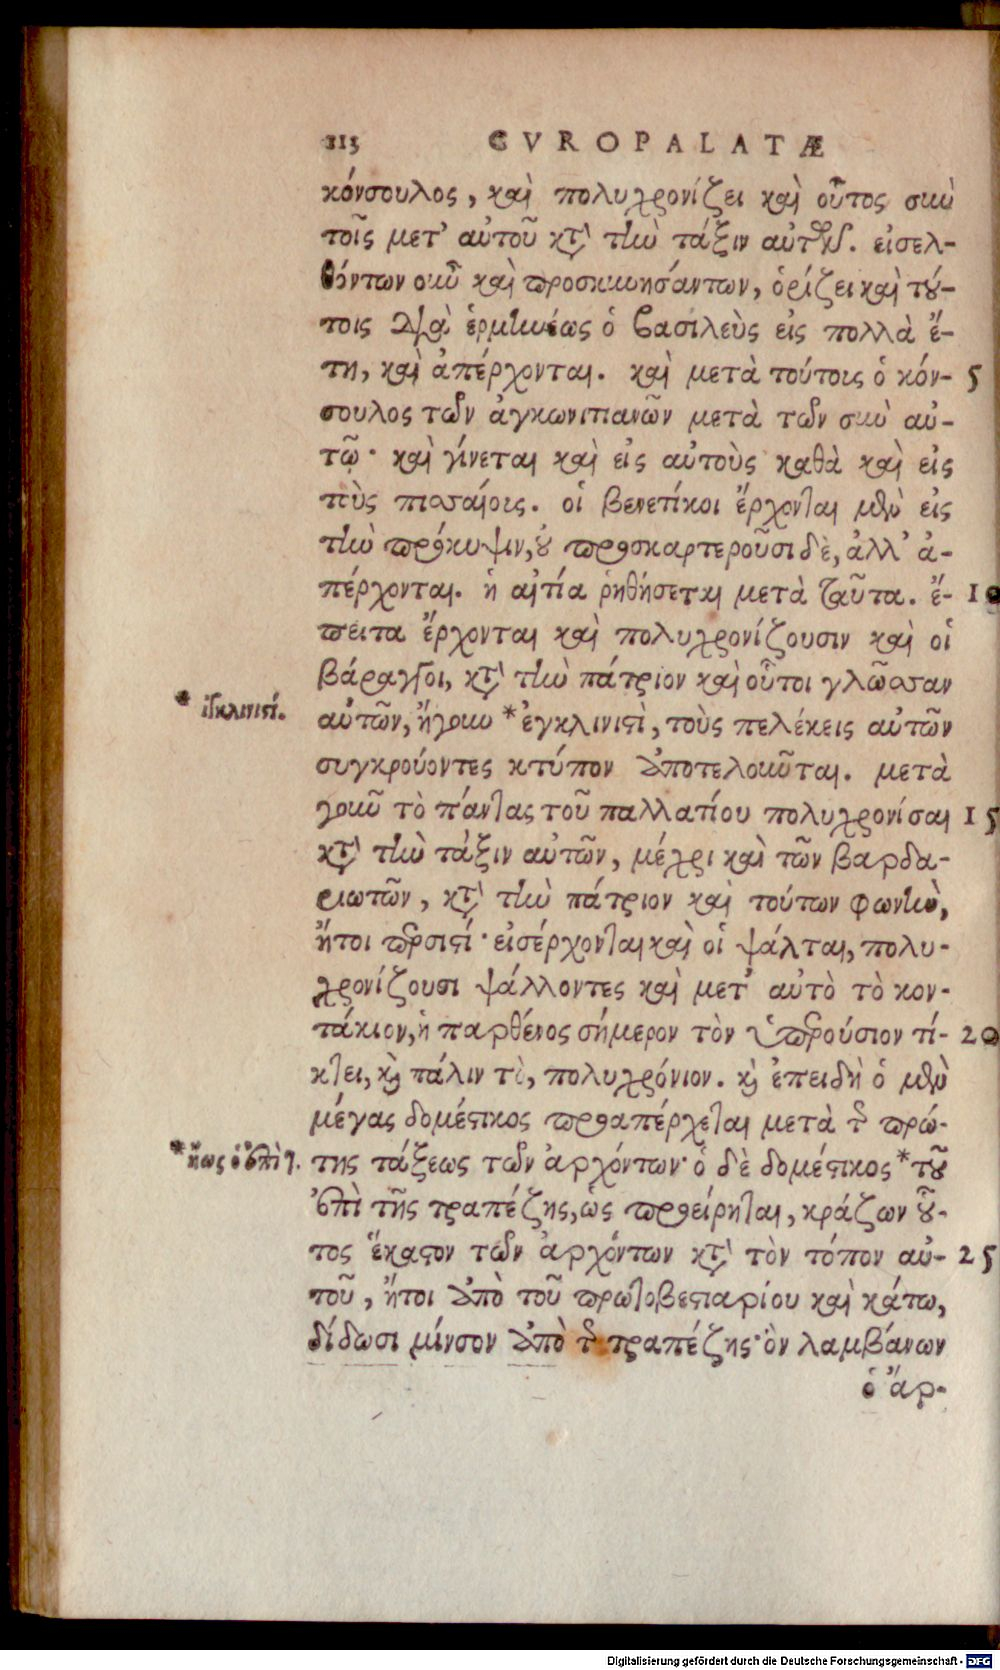 113 CVROPALATÆ
κόνσουλος, καὶ πολυχρονίζει καὶ οὗτος σὺν
τοῖς μετ' αὐτοῦ κτ̀ τὴν τάξιν αὐτῶν. εἰσελ-
θόντων οὖν καὶ προσκυνησάντων, ὁρίζει καὶ τού-
τοις διὰ ἑρμηνέως ὁ βασιλεὺς εἰς πολλὰ ἔ-
τη, καὶ ἀπέρχονται. καὶ μετὰ τούτοις ὁ κόν- 5
σουλος τῶν ἀγκωνιτιανῶν μετὰ τῶν σὺν αὐ-
τῷ· καὶ γίνεται καὶ εἰς αὐτοὺς καθὰ καὶ εἰς
τοὺς πισσαίοις. οἱ βενετίκοι ἔρχονται μὲν εἰς
τὴν πρόκυψιν, οὐ προσκαρτεροῦσι δὲ, ἀλλ' ἀ-
πέρχονται. ἡ αἰτία ῥηθήσεται μετὰ ταῦτα. ἔ- 10
πειτα ἔρχονται καὶ πολυχρονίζουσιν καὶ οἱ
βάραγγοι, κτ̀ τὴν πάτριον καὶ οὗτοι γλῶσσαν
* ἰγκλινιστί.
αὐτῶν, ἤγουν *ἐγκλινιστὶ, τοὺς πελέκεις αὐτῶν
συγκρούοντες κτύπον ἀποτελοῦνται. μετὰ
γοῦν τὸ πάντας τοῦ παλλατίου πολυχρονίσαι 15
κτ̀ τὴν τάξιν αὐτῶν, μέχρι καὶ τῶν βαρδα-
ριωτῶν, κτ̀ τὴν πάτριον καὶ τούτων φωνὴν,
ἤτοι περσιστί· εἰσέρχονται καὶ οἱ ψάλται, πολυ-
χρονίζουσι ψάλλοντες καὶ μετ' αὐτὸ τὸ κον-
τάκιον, ἡ παρθένος σήμερον τὸν ὑπερούσιον τί- 20
κτει, καὶ πάλιν τὸ, πολυχρόνιον. καὶ ἐπειδὴ ὁ μὲν
μέγας δομέστικος προαπέρχεται μετὰ τῆς πρώ-
*ἴσως ὁ ἐπὶ τ.
της τάξεως τῶν ἀρχόντων· ὁ δὲ δομέστικος *τοῦ
ἐπὶ τῆς τραπέζης, ὡς προείρηται, κράζων οὗ-
τος ἕκαστον τῶν ἀρχόντων κτ̀ τὸν τόπον αὐ- 25
τοῦ, ἤτοι ἀπὸ τοῦ πρωτοβεστιαρίου καὶ κάτω,
δίδωσι μίνσον ἀπὸ τῆς τραπέζης· ὃν λαμβάνων
ὁ ἄρ-
Digitalisierung gefördert durch die Deutsche Forschungsgemeinschaft - DFG